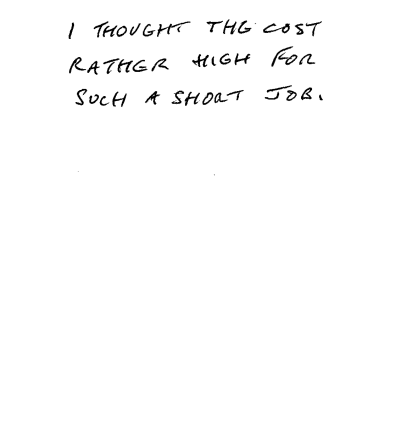 I THOUGHT THE COST
RATHER HIGH FOR
SUCH A SHORT JOB.